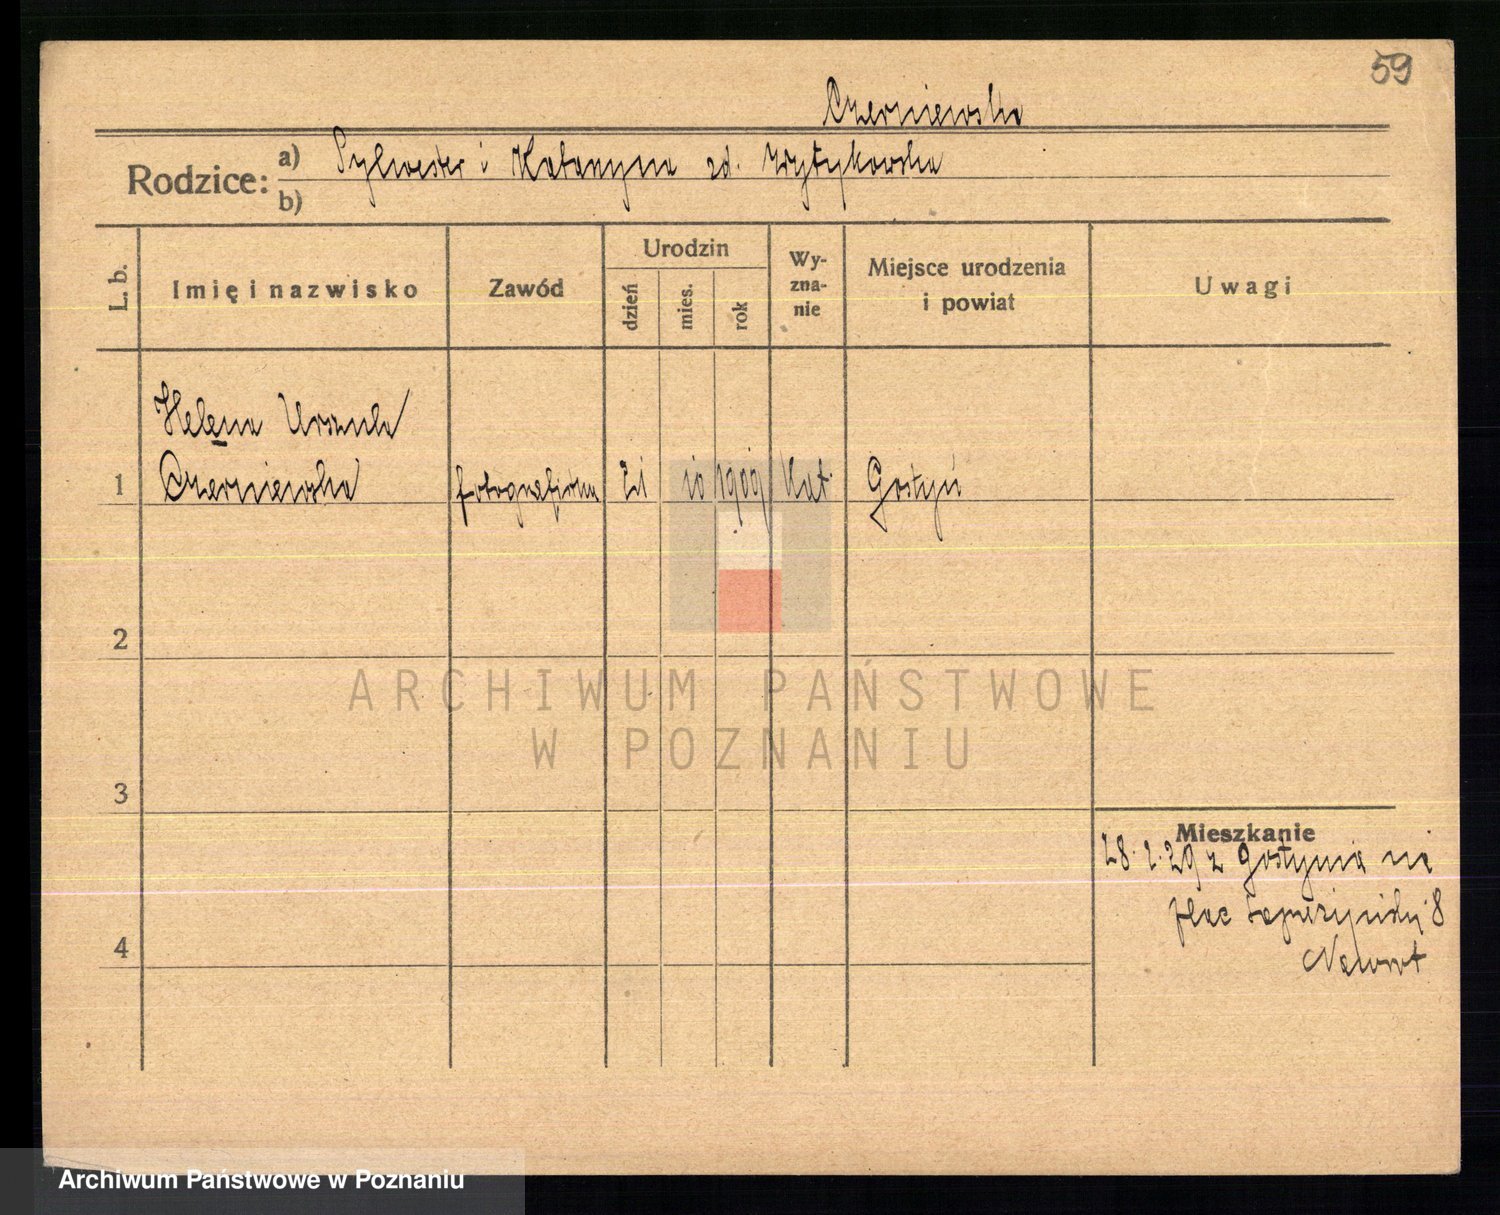 59
Czerniewska
Rodzice: a) Sylwester i Katarzyna zd.
b)
L. b. Imię i nazwisko Zawód Urodzin dzień mies. rok Wy-zna-nie Miejsce urodzenia i powiat Uwagi
Helena Urszula
1 Czerniewska fotografistka 21 10 1909 kat. Gostyń
2
3
Mieszkanie
28. 2. 29 z Gostynia na
plac Sapieżyński 8
4
Nawrot
ARCHIWUM PAŃSTWOWE
W POZNANIU
Archiwum Państwowe w Poznaniu